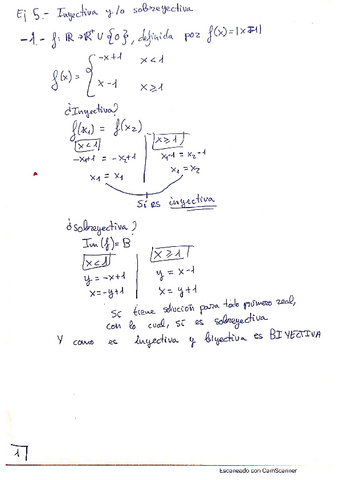 Ej 5.- Inyectiva y/o sobreyectiva
-1.- f: ℝ → ℝ⁺ ∪ {0}, definida por f(x) = |x-1|
f(x) = { -x+1 x < 1
x-1 x ≥ 1
¿Inyectiva?
f(x₁) = f(x₂)
x<1 x ≥ 1
-x₁+1 = -x₂+1 x₁-1 = x₂-1
x₁ = x₁ x₁ = x₂
Sí es inyectiva
¿Sobreyectiva?
Im(f) = B
x<1 x ≥ 1
y = -x+1 y = x-1
x = -y+1 x = y+1
Sí tiene solución para todo número real,
con lo cual, sí es sobreyectiva
Y como es inyectiva y biyectiva es BIYECTIVA
1
Escaneado con CamScanner